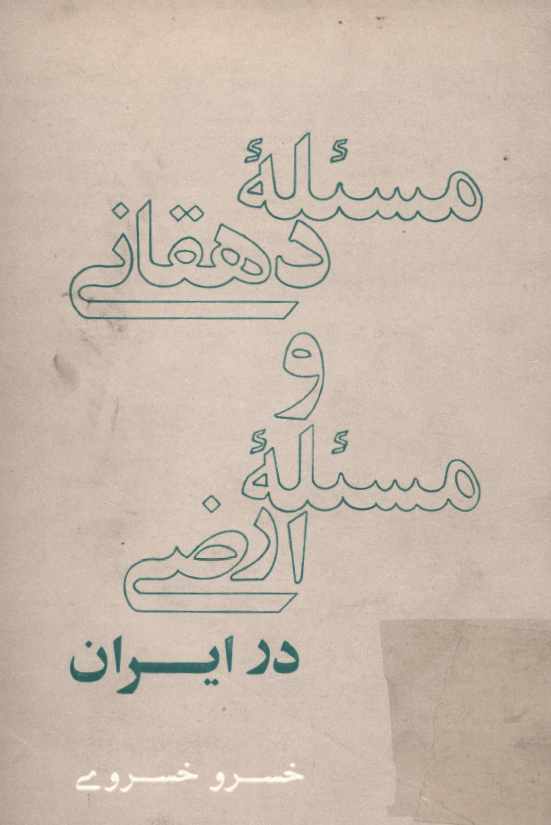 مسئلهٔ
دهقانی
و
مسئلهٔ
ارضی
در ایران
خسرو خسروی